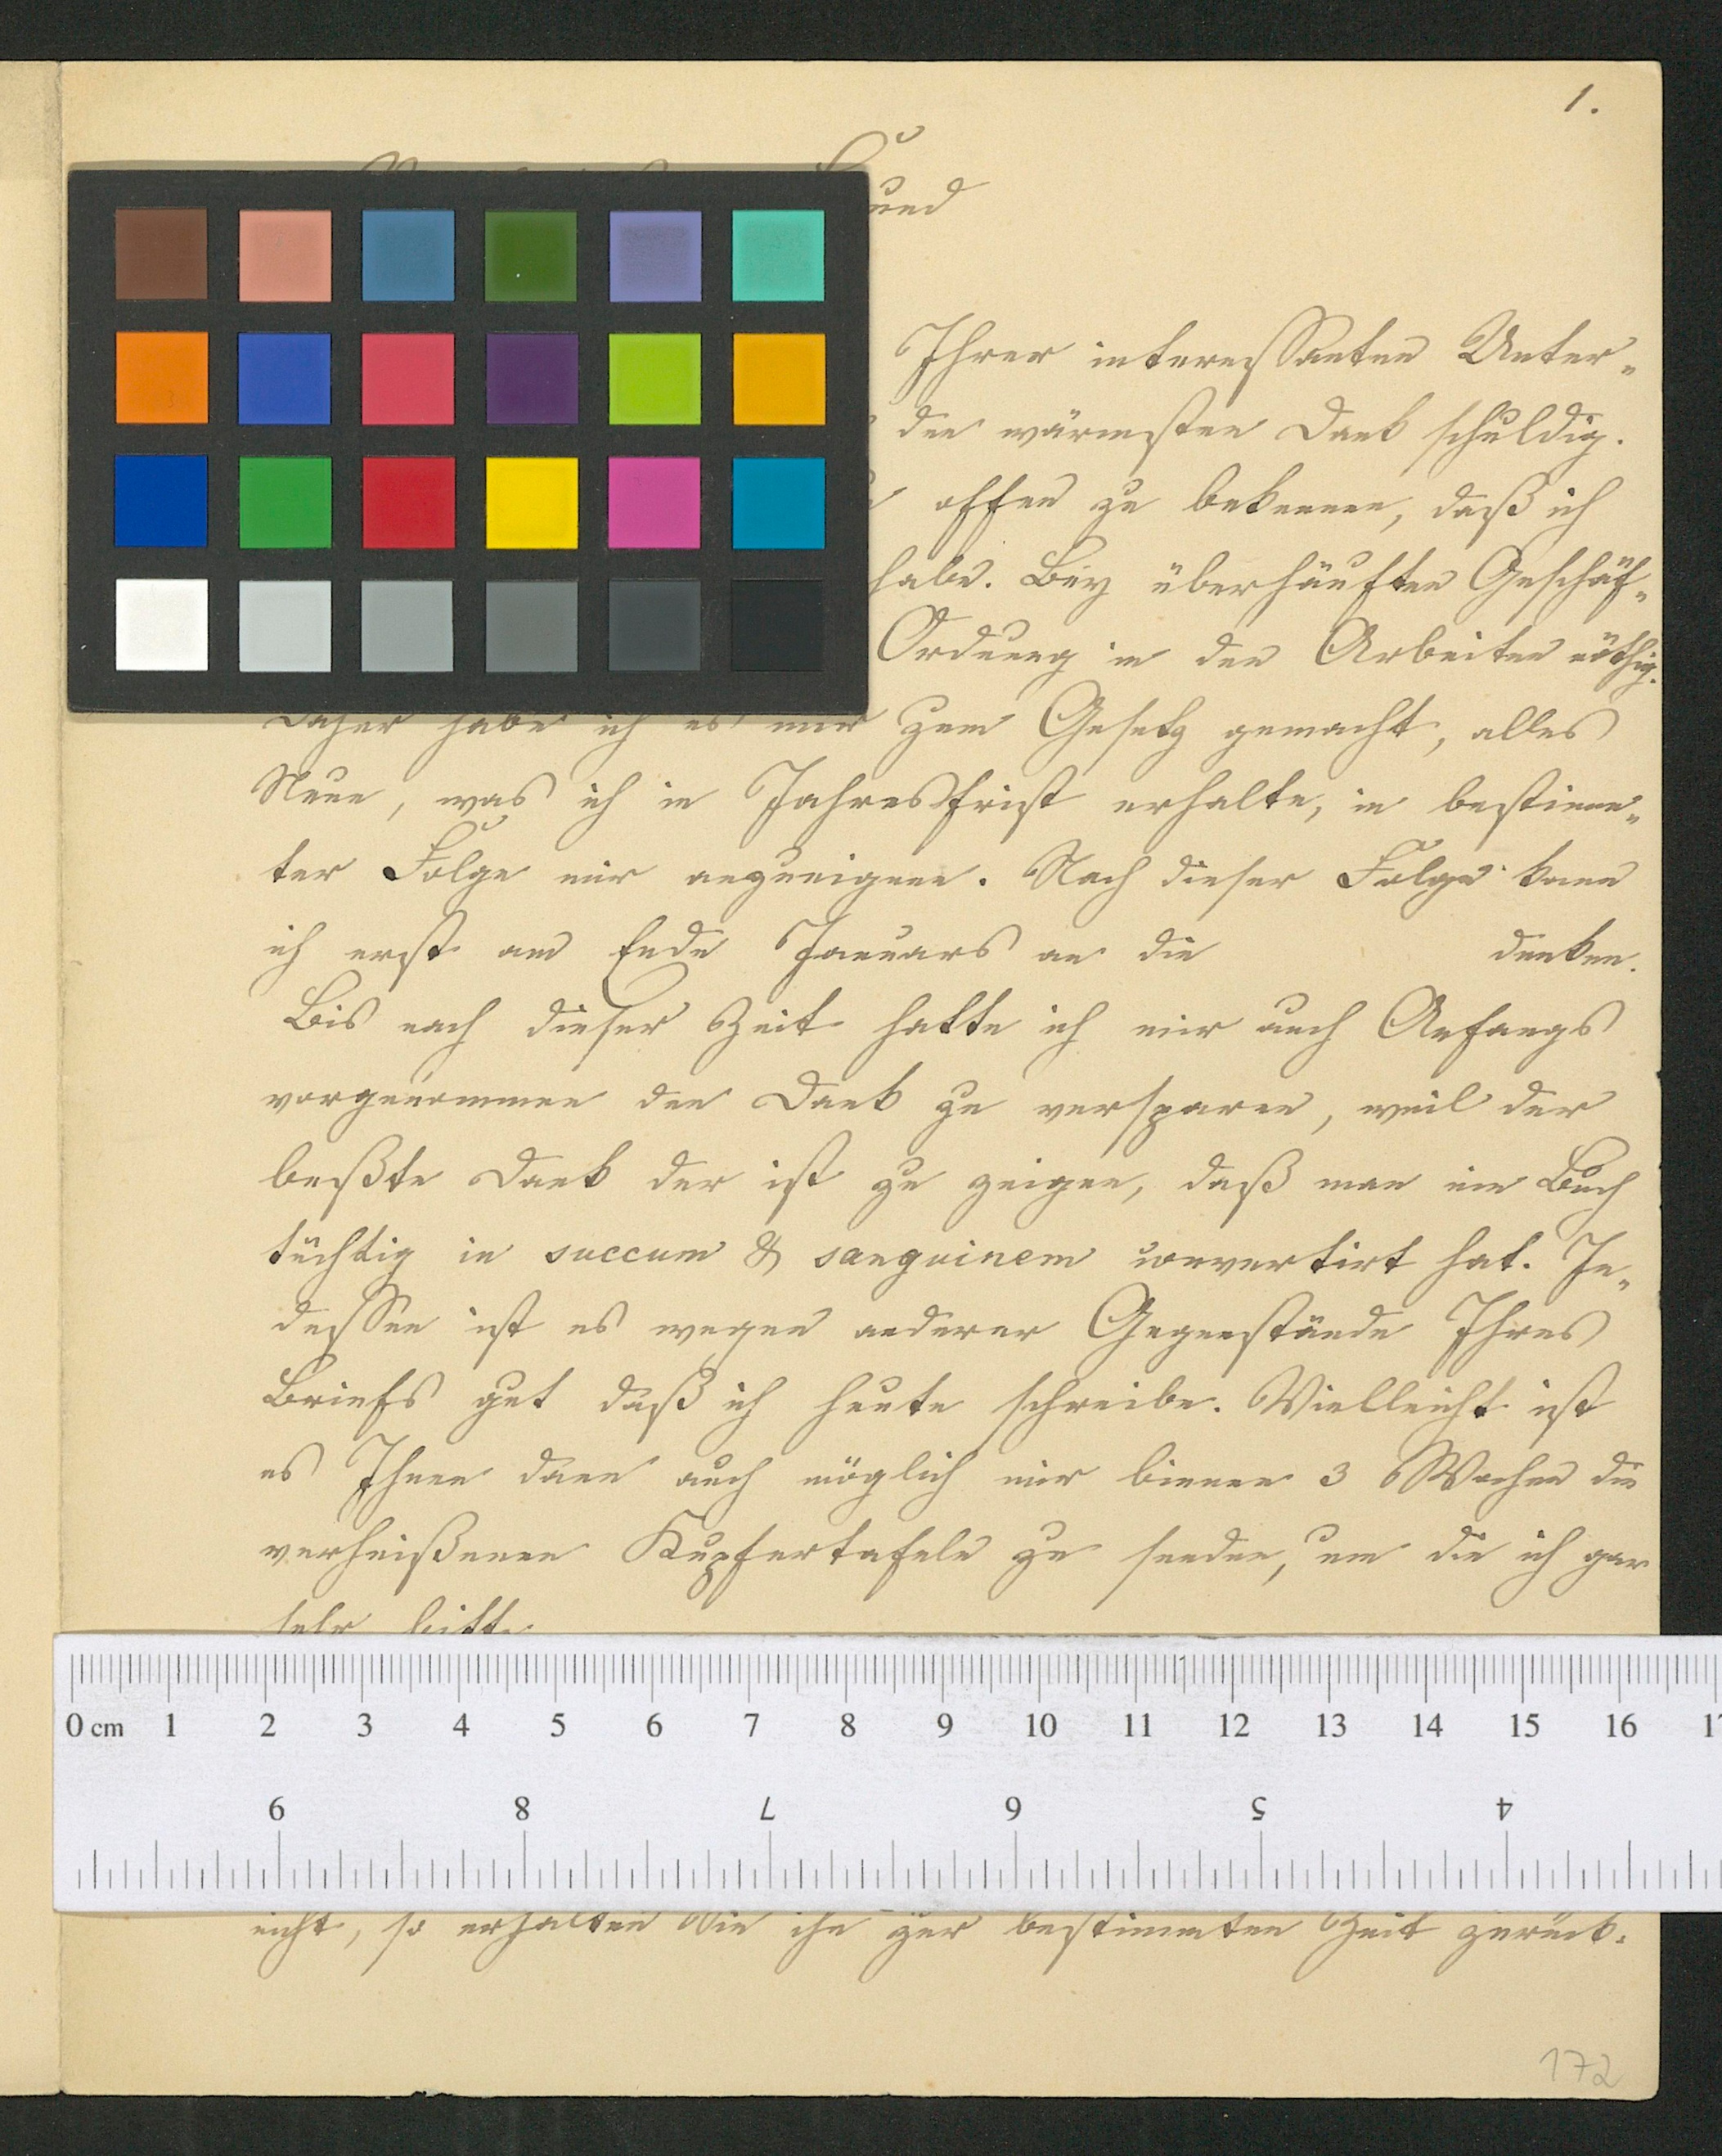 1.
Ihrer interessanten Unter-
den wärmsten Dank schuldig.
offen zu bekennen, daß ich
habe. Bey überhäuften Geschäf-
Ordnung in den Arbeiten nöthig.
Daher habe ich es mir zum Gesetz gemacht, alles
Neue, was ich in Jahresfrist erhalte, in bestimm-
ter Folge mir anzueignen. Nach dieser Folge kann
ich erst am Ende Januars an die denken.
Bis nach dieser Zeit hatte ich mir auch Anfangs
vorgenommen den Dank zu versparen, weil der
beßte Dank der ist zu zeigen, daß man ein Buch
tüchtig in succum & sanguinem convertirt hat. In-
dessen ist es wegen anderer Gegenstände Ihres
Briefs gut daß ich heute schreibe. Vielleicht ist
es Ihnen dann auch möglich mir binnen 3 Wochen die
verheißenen Kupfertafeln zu senden, um die ich gar
sehr bitte.
0 cm 1 2 3 4 5 6 7 8 9 10 11 12 13 14 15 16
9 8 7 6 5 4
nicht, so erhalten Sie ihn zur bestimmten Zeit zurück.
172